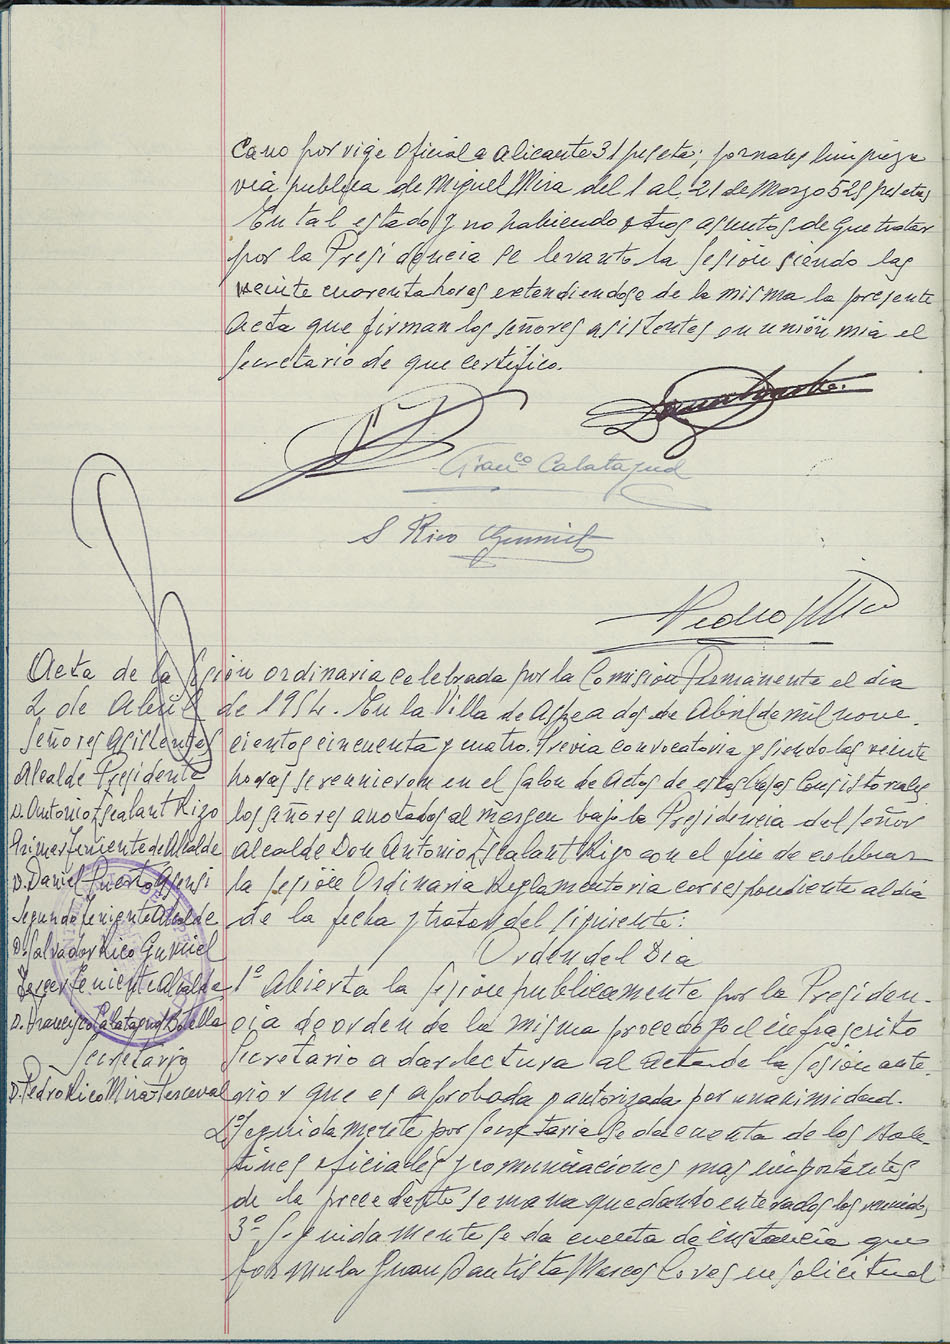 Cano por vige oficial a alicante 31 peseta; jornales limpieza
via publica de Miguel Mira del 1 al 21 de Marzo 525 pesetas
En tal estado y no habiendo otros asuntos de que tratar
por la Presidencia se levanto la sesión siendo las
veinte cuarenta horas extendiendose de la misma la presente
Acta que firman los señores asistentes en unión mia el
Secretario de que certifico.
Franco Calatayud
S Rico Gumiel
Pedro Rico
Acta de la sesión ordinaria celebrada por la Comisión Permanente el dia
2 de Abril de 1954. En la Villa de Aspe a dos de Abril de mil nove-
Señores asistentes
cientos cincuenta y cuatro. Previa convocatoria y siendo las veinte
Alcalde Presidente
horas se reunieron en el salon de actos de estas Casas Consistoriales
D. Antonio Escalant Rizo
los señores anotados al margen bajo la Presidencia del señor
Primer Teniente de Alcalde
Alcalde Don Antonio Escalant Rizo con el fin de celebrar
D. Daniel Puerto
la sesión Ordinaria Reglamentaria correspondiente al dia
Segundo teniente Alcalde
de la fecha y tratar del siguiente:
D. Salvador Rico Gumiel
Orden del Dia
Tercer Teniente Alcalde
1º Abierta la sesión publicamente por la Presiden-
D. Francisco Calatayud Botella
cia de orden de la misma procedo yo el infrascrito
Secretario
Secretario a dar lectura al acta de la sesión ante-
D. Pedro Rico Mira-Perceval
rior que es aprobada y autorizada por unanimidad.
2º Seguidamente por Secretaria se da cuenta de los Bole-
tines oficiales y comunicaciones mas importantes
de la precedente semana quedando enterados los reunidos
3º Seguidamente se da cuenta de instancia que
formula Juan Bautista Marcos Covas en solicitud